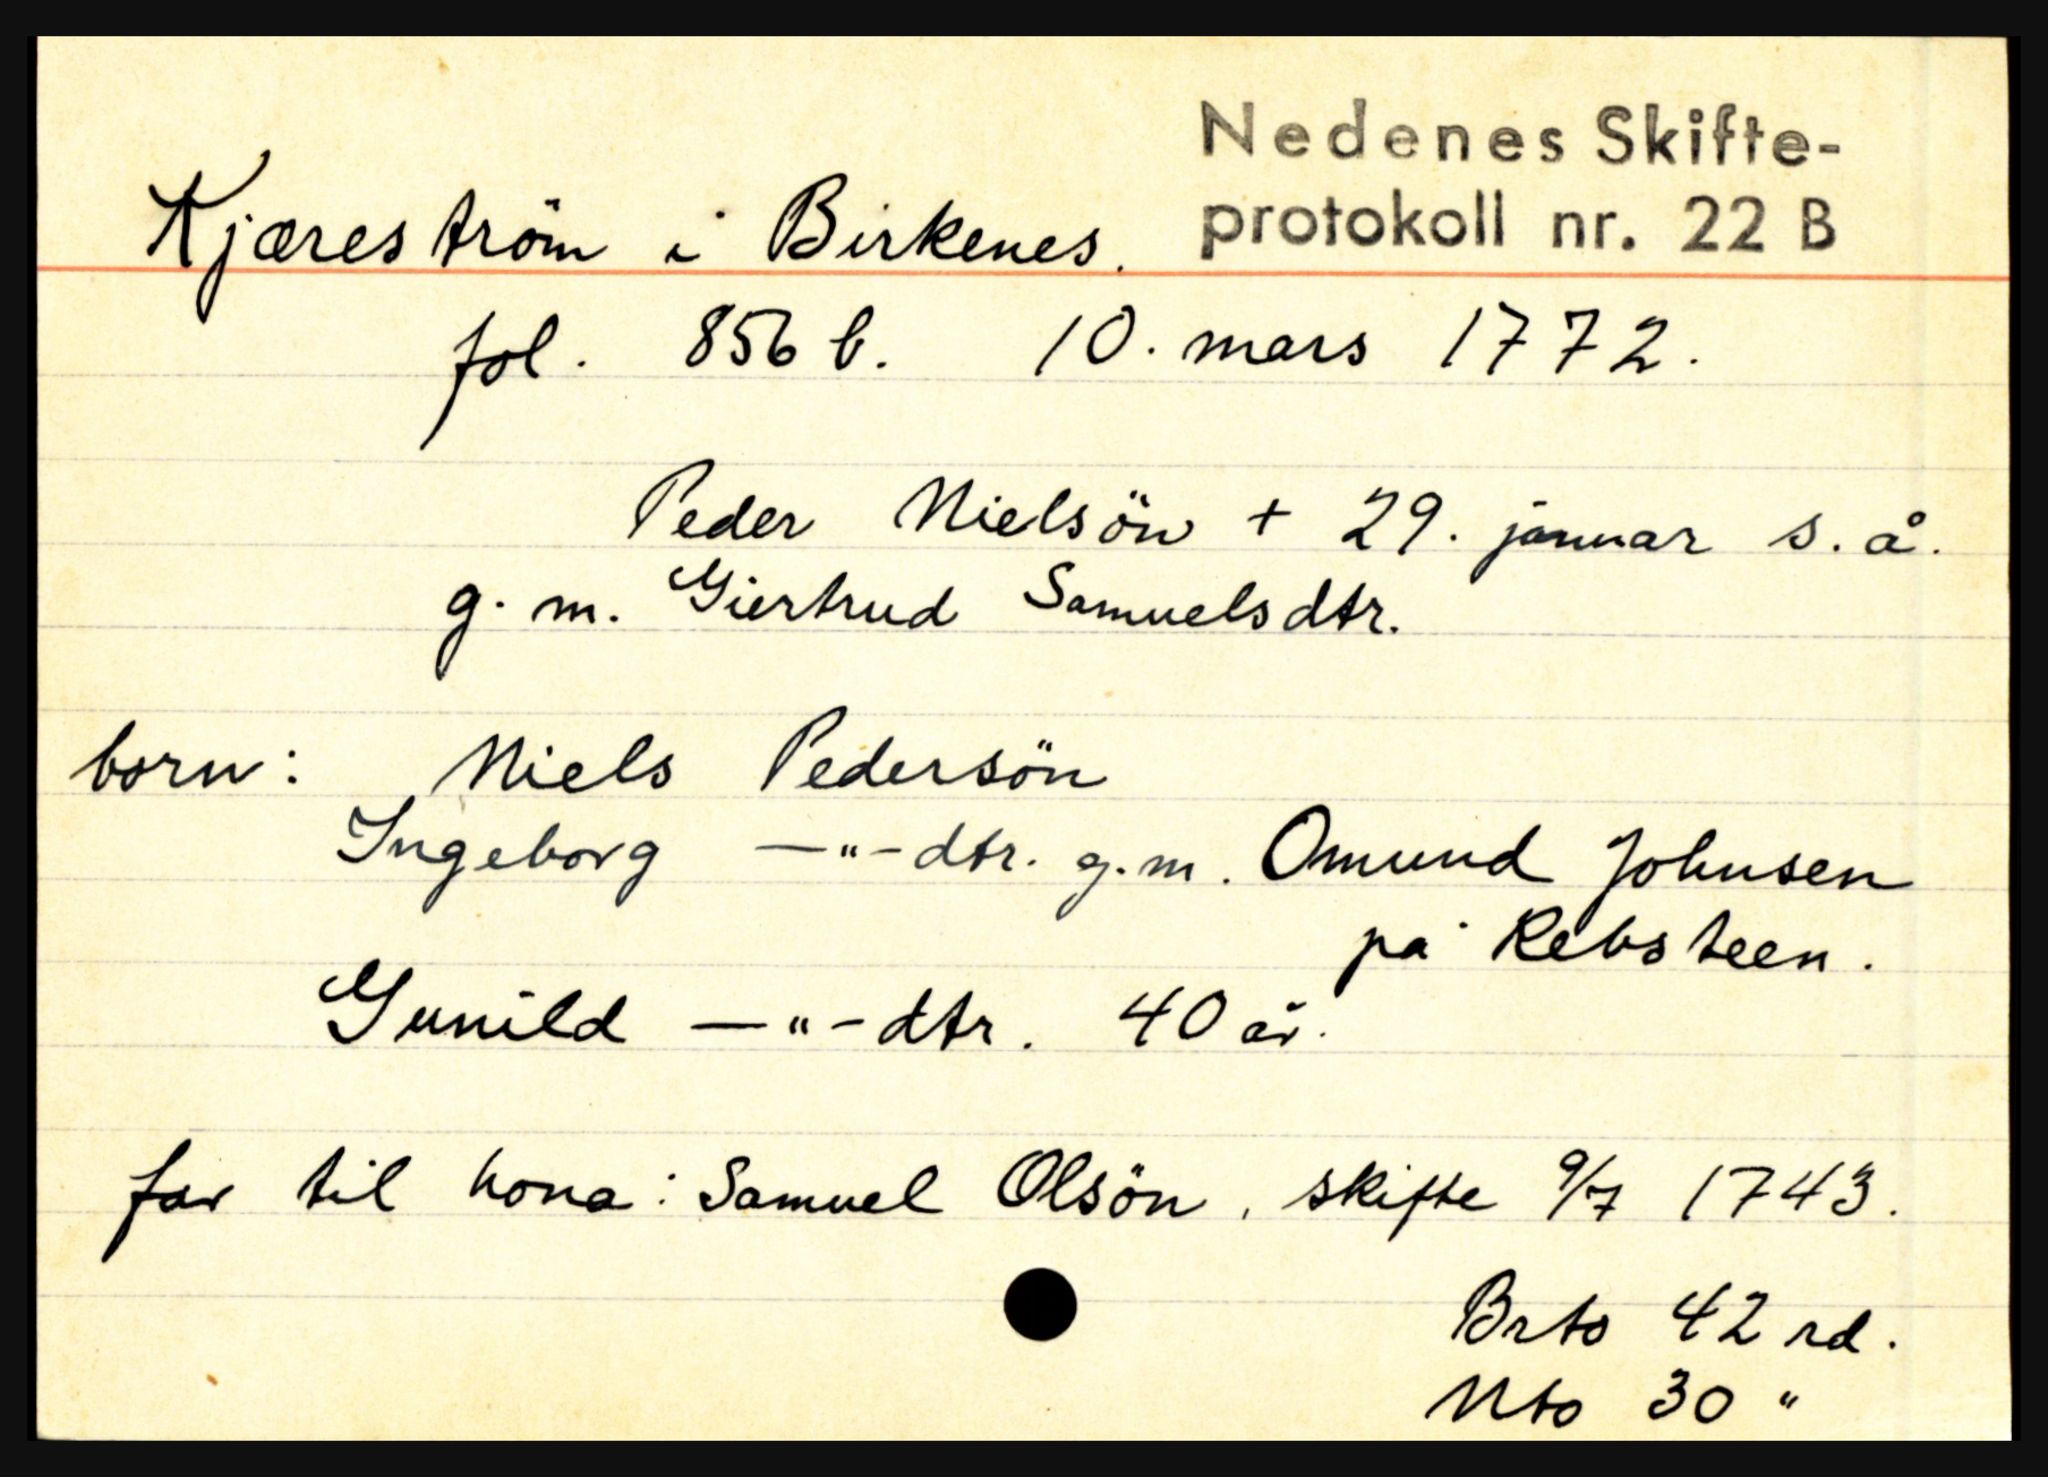 Nedenes Skifte-
protokoll nr. 22 B
Kjæreström i Birkenes.
fol. 856 b. 10. mars 1772.
Peder Nielsön + 29. januar s. å.
g. m. Giertrud Samuelsdtr.
born: Niels Pedersön
Ingeborg —"—dtr. g.m. Omund Johnsen
på Rebsteen.
Gunild —"—dtr. 40 år.
far til kona: Samuel Olsön, skifte 9/7 1743.
Brto 42 rd.
Nto 30 "